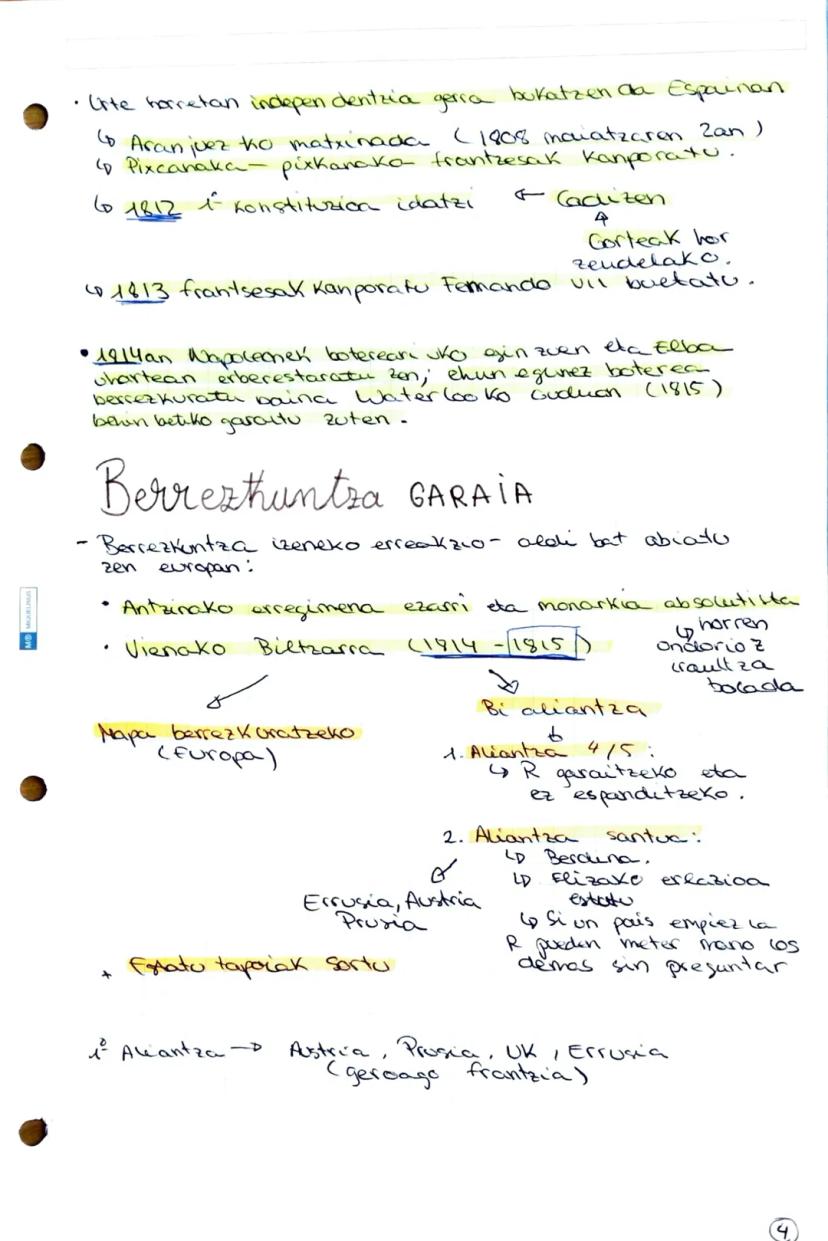 · Urte horretan independentzia gerra bukatzen da Espainan
↳ Aranjuez ko matxinada (1808 maiatzaren 2an)
↳ Pixcanaka - pixkanako frantzesak kanporatu.
↳ 1812 1º konstituzioa idatzi ← Cadizen
↑
Corteak hor
zeudelako.
↳ 1813 frantsesak kanporatu Fernando VII bueltatu.
• 1914an Napoleonek botereari uko egin zuen eta Elba
uhartean erberestaratu zen; ehun egunez boterea
berrezkuratu baina Waterloo ko Guduan (1815)
behin betiko garaitu zuten.
Berrezkuntza GARAIA
- Berrezkuntza izeneko erreakzio- aldi bat abiatu
zen europan:
• Antzinako erregimena ezarri eta monarkia absolutista
↳ horren
ondorioz
iraultza
bolada
• Vienako Biltzarra (1914 - 1815)
Mapa berrezkuratzeko
(Europa)
Bi aliantza
↓
1. Aliantza 4/5:
↳ R garaitzeko eta
ez espanditzeko.
2. Aliantza santua:
↳ Berdina.
↳ Elizako erlazioa
estatu
↳ Si un pais empiez la
R pueden meter mano los
demas sin preguntar
Errusia, Austria
Prusia
+ Estatu tapoiak sortu
1º Aliantza → Austria, Prusia, UK, Errusia
(geroago frantzia)
MIQUELRIUS
4